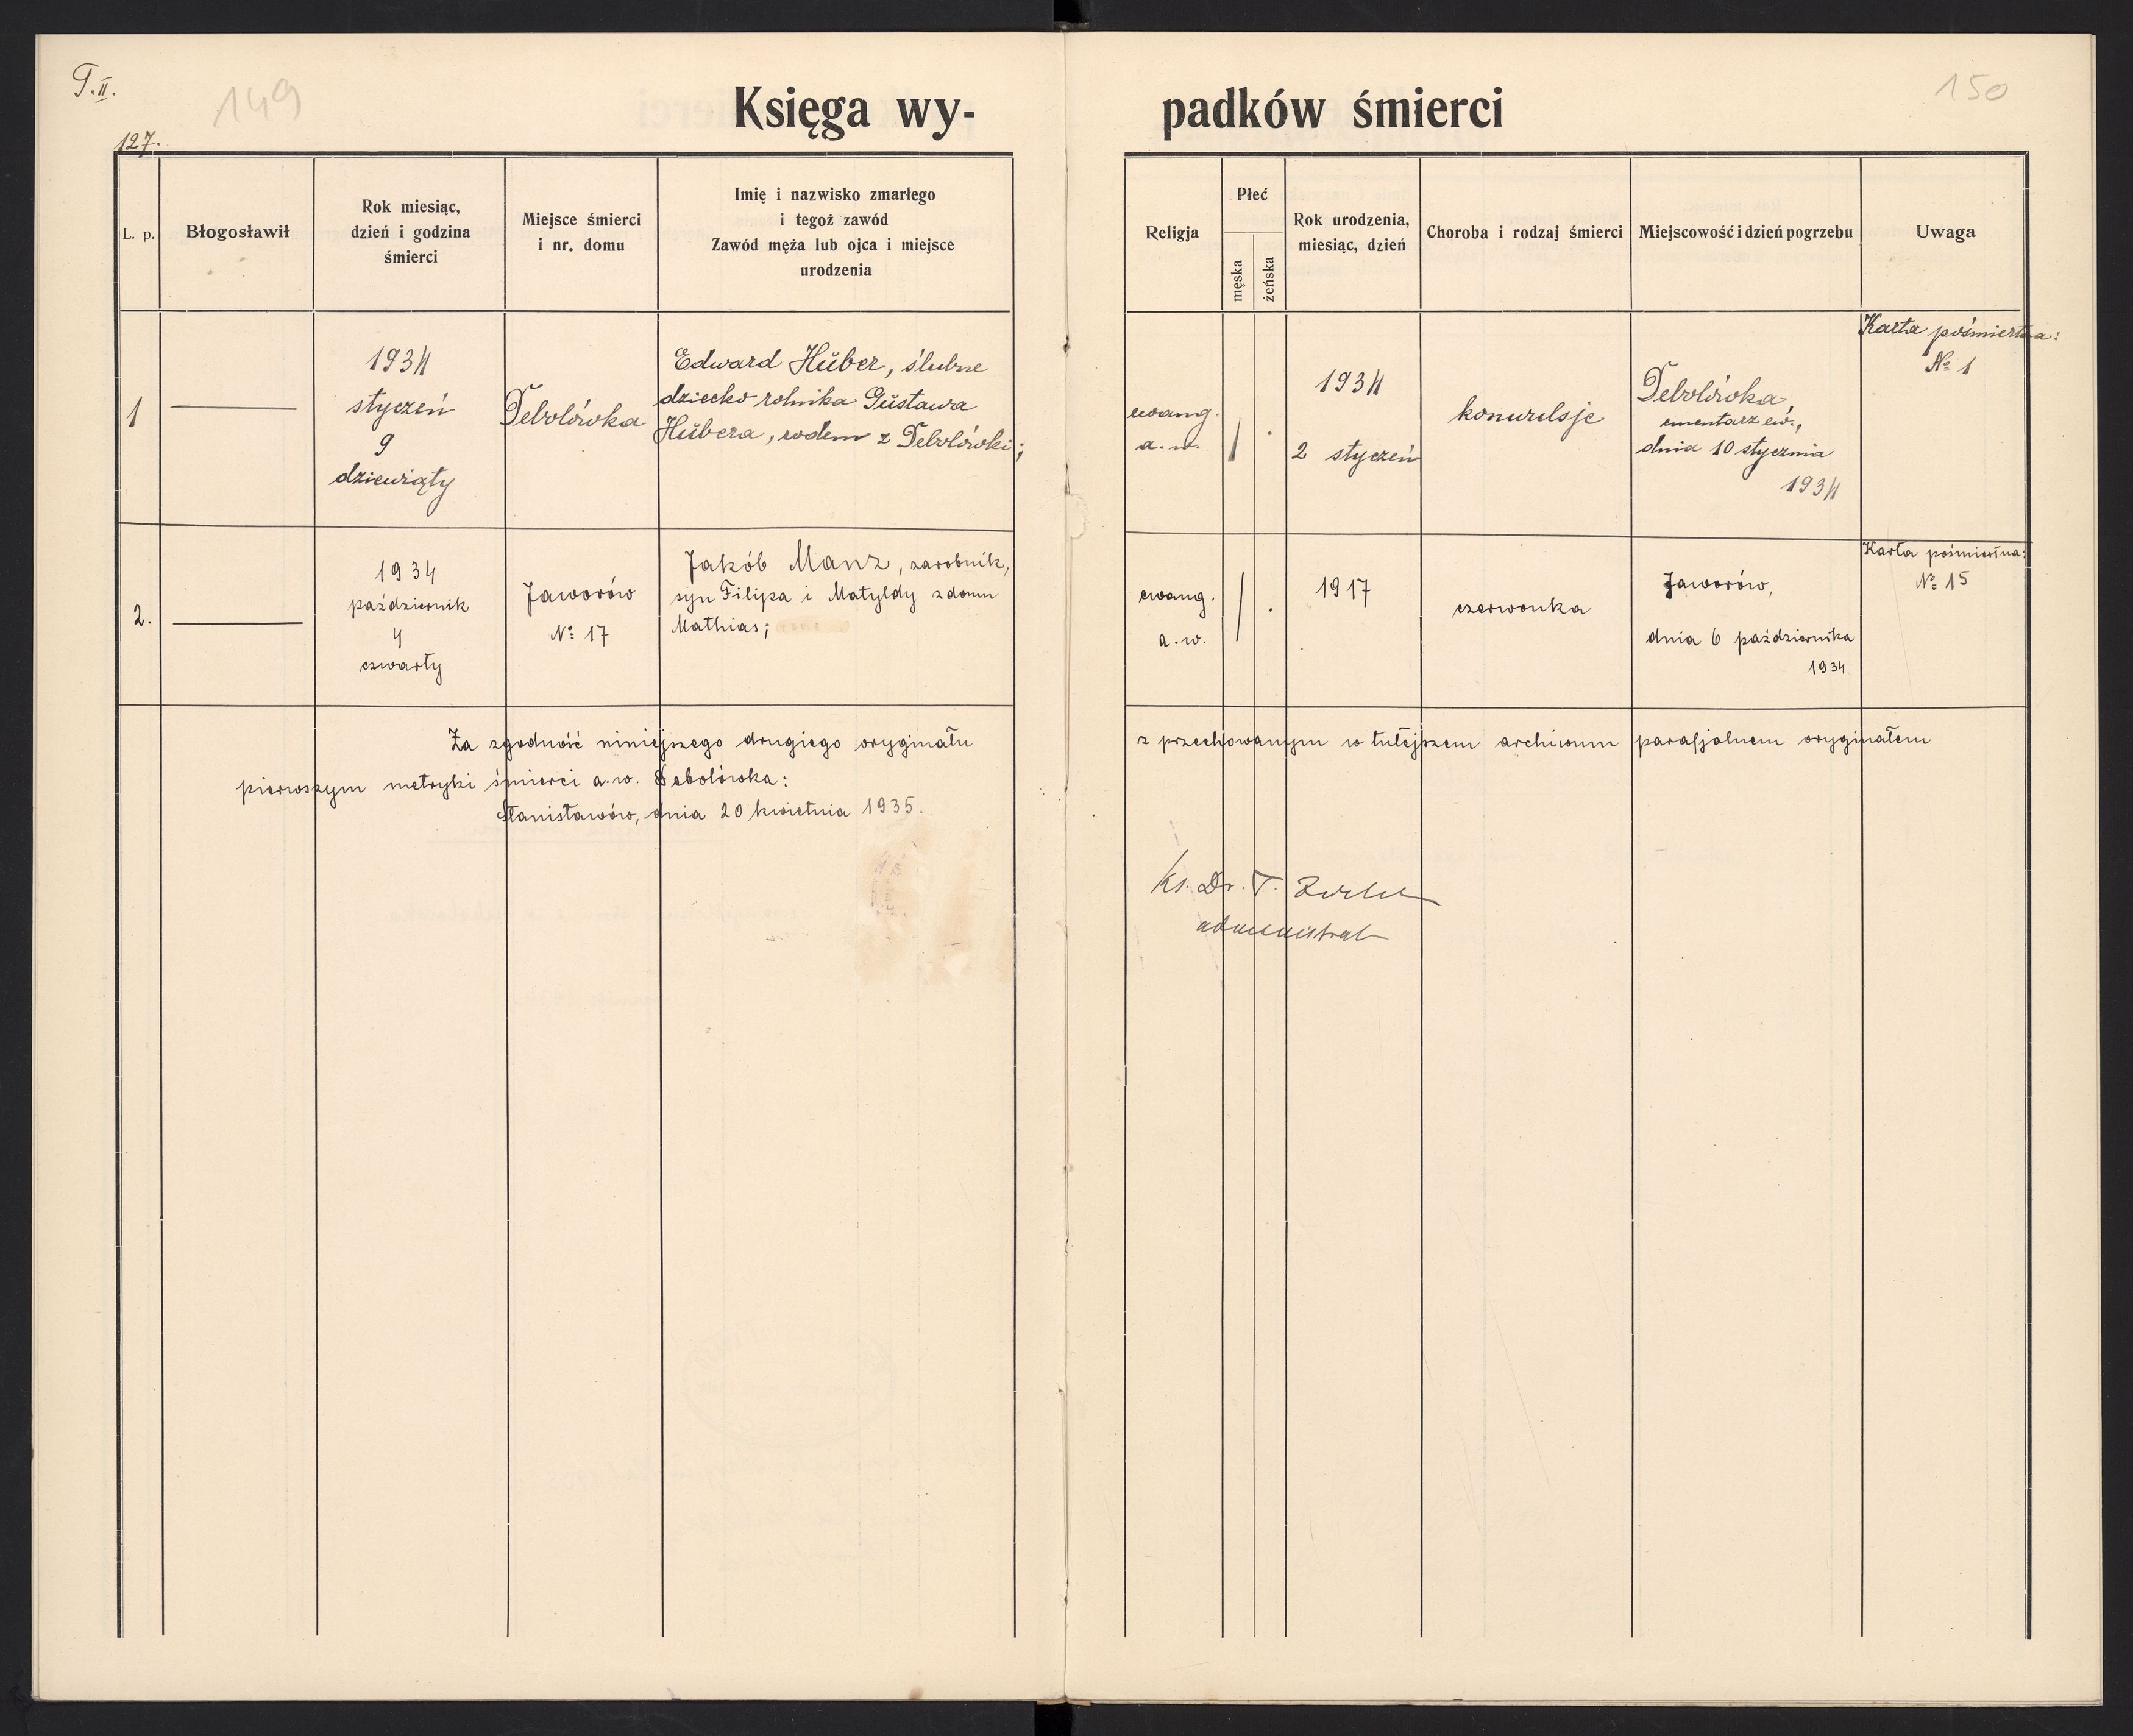 T. II.
149
150
127.
Księga wy-
padków śmierci
L. p.
Błogosławił
Rok miesiąc,
dzień i godzina
śmierci
Miejsce śmierci
i nr. domu
Imię i nazwisko zmarłego
i tegoż zawód
Zawód męża lub ojca i miejsce
urodzenia
Religja
Płeć
męska
żeńska
Rok urodzenia,
miesiąc, dzień
Choroba i rodzaj śmierci
Miejscowość i dzień pogrzebu
Uwaga
1
1934
styczeń
9
dziewiąty
Debolówka
Edward Hüber, ślubne
dziecko rolnika Gustawa
Hübera, rodem z Debolówki;
ewang.
a. w.
1934
2 styczeń
konwulsje
Debolówka,
cmentarz ew.,
dnia 10 stycznia
1934
Karta pośmiertna:
№ 1
2.
1934
październik
4
czwarty
Jaworów
№ 17
Jakób Manz, zarobnik,
syn Filipa i Matyldy z domu
Mathias;
ewang.
a. w.
1917
czerwonka
Jaworów,
dnia 6 października
1934
Karta pośmiertna:
№ 15
Za zgodność niniejszego drugiego oryginału z przechowanym w tutejszem archiwum parafjalnem oryginałem
pierwszym metryki śmierci a. w. Debolówka:
Stanisławów, dnia 20 kwietnia 1935.
Ks. Dr. T.
administrat